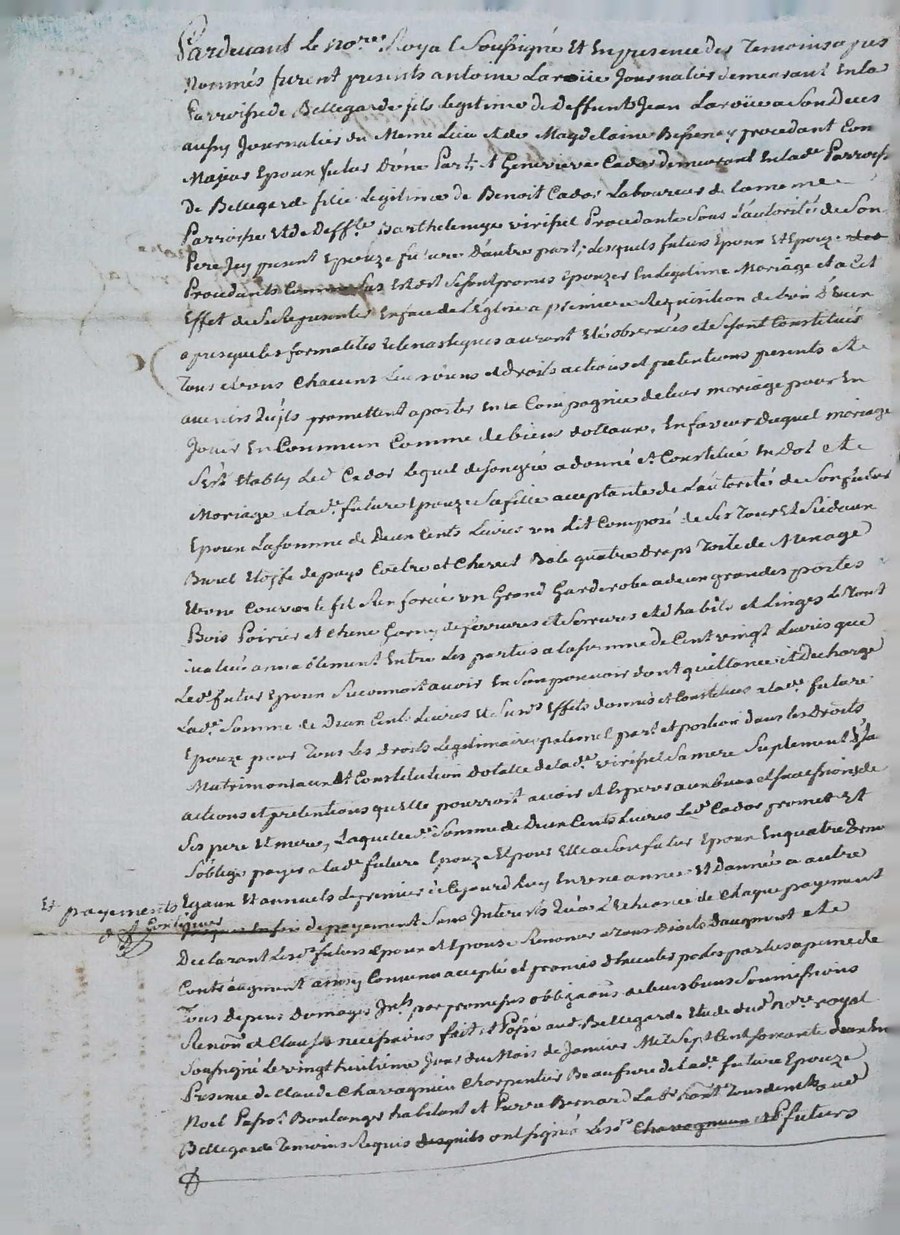 Pardevant Le no.re Royal Soussigné Et En presence des Temoins apres
Nommés furent presents antoine Laroüe Journalier demeurant En la
Parroisse de Bellegarde fils legitime de deffunt Jean Laroüe a Son deces
aussy Journalier du Meme Lieu et de Magdelaine Bessenay procedant Com
Majeur Epoux futur D'une Part, Et Genevieve Cador demeurant En lad.e Parroisse
de Bellegarde fille Legitime de Benoit Cador Laboureur de la meme
Parroisse Et de Deff.te Barthelemye viriset Procedante Sous L'autorité de Son
Pere Icy present Epouze future D'autre part; Lesquels futurs Epoux Et Epouze
Procedants Comme Sus Est dit se sont promis Epouzer En legitime Mariage et a Cet
Effet de Se Representer En face de L'Eglise a premiere Requisition de L'un D'eux
apres que les formalités Eclesiastiques auront Eté observées et se sont Constitués
Tous et uns Chacuns Leurs biens et droits actions et pretentions presents Et
avenirs qu'ils promettent aporter En la Compagnie de leur mariage pour En
Jouir En Commun Comme de biens dottaux, En faveur duquel mariage
S'est Etably Led. Cador Lequel de son gré a donné Et Constitué En Dot Et
Mariage a lad.e future Epouze Sa fille acceptante de L'autorité de Son futur
Epoux La somme de Deux Cents Livres un Lit Composé de Ses Tour Et Rideaux
Burel Etoffe de pays Coëtre et Chevet Bale quatre Draps Toile de Menage
Et une Couverte fil un Grand Garderobe a deux grandes portes
Bois Poirier et Chene Garny de ferrures et Serrures et d'habits et Linges Le Tout
Evalué amiablement Entre Les parties a la somme de Cent vingt Livres que
Led. futur Epoux Reconnoit avoir En Son pouvoir dont quittance et Decharge
Lad.e Somme de Deux Cents Livres Et Susd. Effets donnés et Constitués a lad.e future
Epouze pour Tous Les droits Legitimaires paternel part et portion dans les Droits
Matrimoniaux Et Constitution dotalle de lad.e viriset Sa mere Suplement
actions et pretentions qu'elle pourroit avoir Et Esperer aux biens et successions de
Ses pere Et mere, Laquelle d.e Somme de Deux Cents Livres Led. Cador promet Et
S'oblige payer a lad.e future Epouze Et pour Elle a Son futur Epoux En quatre Termes
Egaux Et annuels le premier de Cejourd'huy En une année Et D'année a autre
Et payements Contigues
Jusques En fin de payement Sans Interets qu'a L'Echeance de Chaque payement
Declarant Lesd. futurs Epoux et Epouze Renoncer a tous Droits D'augment et de
Contr'augment ainsy Convenu accepté et promis d'hacuter par les parties a peine de
Tous depens Domages Int.ts par promesses obligations de leurs biens Soumissions
Renon. et Clauses necessaires fait Et Passé aud. Bellegarde Etude dud. No.re royal
Soussigné Le vingt huitième Jour du Mois de Janvier Mil Sept Cent soixante deux En
Presence de Claude Chavagnieu Charpentier Beaufrere de lad.e future Epouze
Noel Boulanger habitant et Pierre Bernard
Bellegarde Temoins Requis desquels ont signé Lesd. Chavagnieu Et futurs